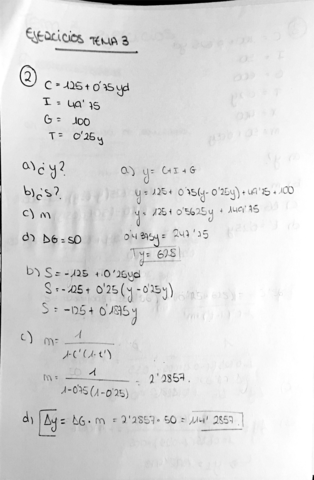 EJERCICIOS TEMA 3
② C = 125 + 0'75yd
I = 49'75
G = 100
T = 0'25y
a) ¿y?
b) ¿s?
c) m
d) ΔG = 50
a) y = C + I + G
y = 125 + 0'75(y - 0'25y) + 49'75 + 100
y = 125 + 0'5625y + 149'75
0'4375y = 247'75
y = 625
b) S = -125 + 0'25yd
S = -125 + 0'25(y - 0'25y)
S = -125 + 0'1875y
c) m = 1 / 1-c'(1-t')
m = 1 / 1-0'75(1-0'25) = 2'2857
d) Δy = ΔG · m = 2'2857 · 50 = 114'2857